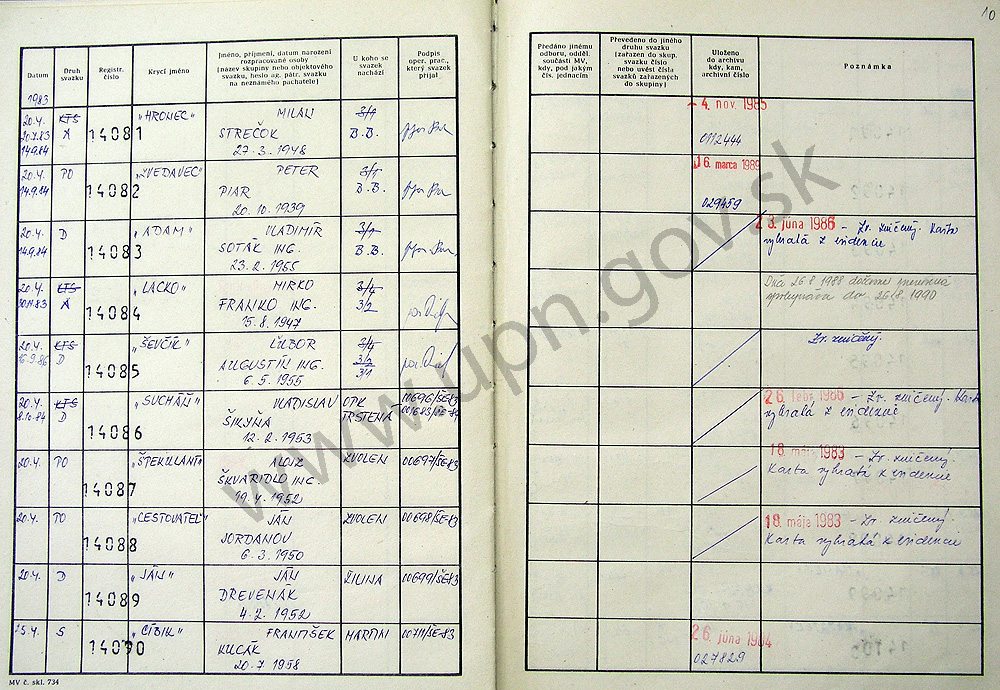 10
Datum
Druh
svazku
Registr.
číslo
Krycí jméno
Jméno, příjmení, datum narození
rozpracované osoby
(název skupiny nebo objektového
svazku, heslo ag. pátr. svazku
na neznámého pachatele)
U koho se
svazek
nachází
Podpis
oper. prac.,
který svazek
přijal
Předáno jinému
odboru, odděl.
součásti MV,
kdy, pod jakým
čís. jednacím
Převedeno do jiného
druhu svazku
(zařazen do skup.
svazku číslo
nebo uvést čísla
svazků zařazených
do skupiny)
Uloženo
do archivu
kdy, kam,
archivní číslo
Poznámka
1983
20.4. KTS „HRONEC" MILAN 3/1 4. nov. 1985
20.7.83 A 14081 STREČOK B.B.
14.9.84 27.3.1948 0112444
20.4. PO „ZVEDAVEC" PETER 3/1 16. marca 1989
14.9.84 14082 PIAR B.B.
20.10.1939 029459
20.4. D „ADAM" VLADIMÍR 3/1 3. júna 1986 - Zv. zničený. Karta
14.9.84 14083 SOTÁK ING. B.B. vybratá z evidencie
23.2.1955
20.4. KTS „LACKO" MIRKO 3/4 Dňa 26.8.1988
30.11.83 A 14084 FRANKO ING. 3/2 26.8.1990
15.8.1947
20.4. KTS „ŠEVČÍK" ĽUBOR 3/4 Zv. zničený.
15.9.86 D 14085 AUGUSTÍN ING. 3/2
6.5.1955 3/1
20.4. KTS „SUCHÁŇ" VLADISLAV OPK 00696/ŠE-83 26. febr. 1986 - Zv. zničený. Karta
8.10.84 D 14086 ŠIKYŇA TRSTENÁ vybratá z evidencie
12.2.1953
20.4. PO „ŠTEKULANT" ALOJZ ZVOLEN 00697/ŠE-83 18. mája 1983 - Zv. zničený.
14087 ŠKVARIDLO ING. Karta vybratá z evidencie
19.4.1952
20.4. PO „CESTOVATEĽ" JÁN ZVOLEN 00698/ŠE-83 18. mája 1983 - Zv. zničený.
14088 JORDANOV Karta vybratá z evidencie
6.3.1950
20.4. D „JÁN" JÁN ŽILINA 00699/ŠE-83
14089 DREVENÁK
4.2.1952
25.4. S „ČÍBIK" FRANTIŠEK MARTIN 00711/ŠE-83 26. júna 1984
14090 KUCÁK 027829
20.7.1958
MV č. skl. 734
www.upn.gov.sk